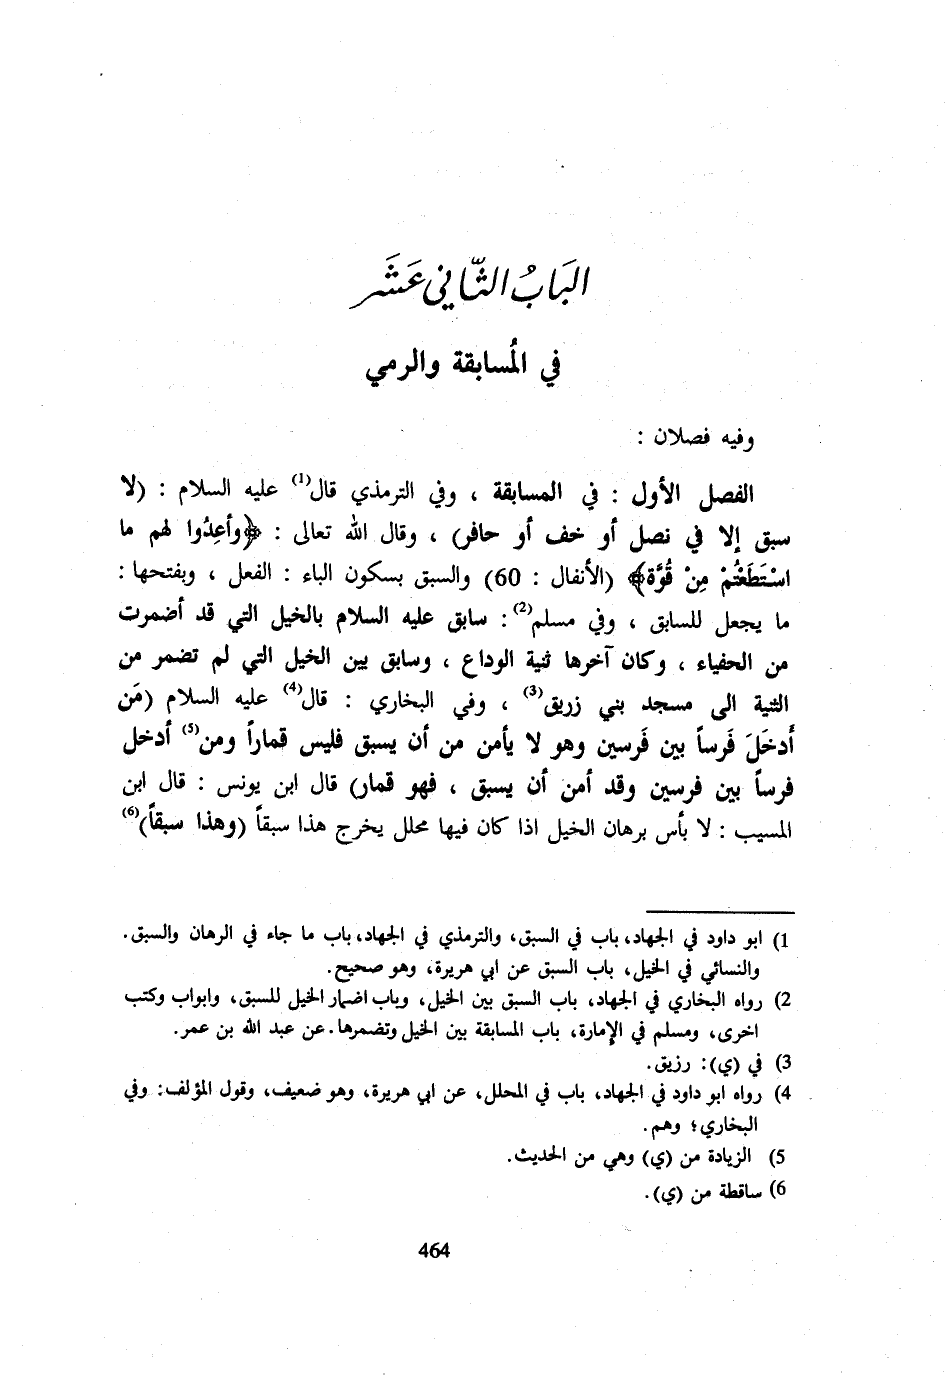 البَابُ الثَّاني عَشَر
في المُسابقة والرمي
وفيه فصلان :
الفصل الأول : في المسابقة ، وفي الترمذي قال(1) عليه السلام : (لا
سبق إلا في نصل أو خف أو حافر) ، وقال الله تعالى : ﴿وأعِدُوا لهم ما
اسْتَطَعْتُمْ مِنْ قُوَّة﴾ (الأنفال : 60) والسبق بسكون الباء : الفعل ، وبفتحها :
ما يجعل للسابق ، وفي مسلم(2) : سابق عليه السلام بالخيل التي قد أضمرت
من الحفياء ، وكان آخرها ثنية الوداع ، وسابق بين الخيل التي لم تضمر من
الثنية الى مسجد بني زريق(3) ، وفي البخاري : قال(4) عليه السلام (مَن
أَدخَلَ فَرساً بين فَرسين وهو لا يأمن من أن يسبق فليس قماراً ومن(5) أدخل
فرساً بين فرسين وقد أمن أن يسبق ، فهو قمار) قال ابن يونس : قال ابن
المسيب : لا بأس برهان الخيل اذا كان فيها محلل يخرج هذا سبقاً (وهذا سبقاً)(6)
1) ابو داود في الجهاد، باب في السبق، والترمذي في الجهاد، باب ما جاء في الرهان والسبق.
والنسائي في الخيل، باب السبق عن ابي هريرة، وهو صحيح.
2) رواه البخاري في الجهاد، باب السبق بين الخيل، وباب اضمار الخيل للسبق، وابواب وكتب
اخرى، ومسلم في الإمارة، باب المسابقة بين الخيل وتضمرها. عن عبد الله بن عمر.
3) في (ي): رزيق.
4) رواه ابو داود في الجهاد، باب في المحلل، عن ابي هريرة، وهو ضعيف، وقول المؤلف: وفي
البخاري؛ وهم.
5) الزيادة من (ي) وهي من الحديث.
6) ساقطة من (ي).
464